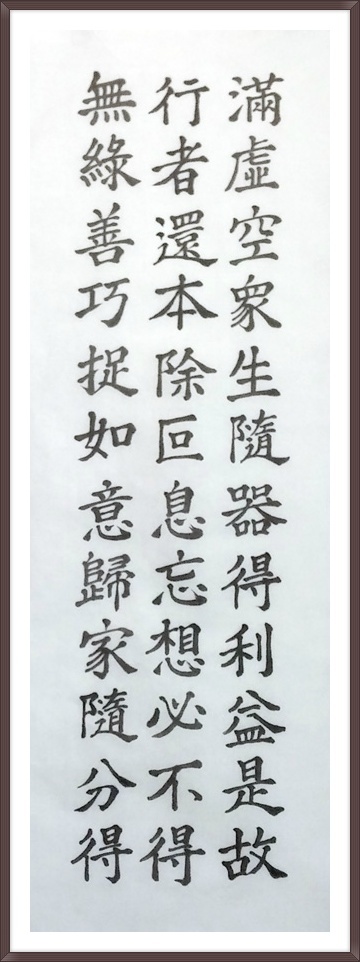 滿虛空衆生隨器得利益是故
行者還本除叵息忘想必不得
無綠善巧捉如意歸家隨分得